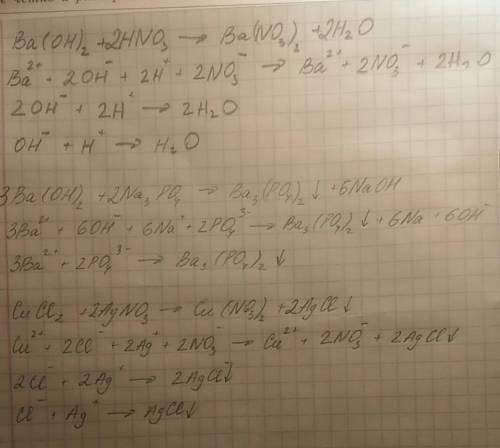 Ba(OH)₂ + 2HNO₃ → Ba(NO₃)₂ + 2H₂O
Ba²⁺ + 2OH⁻ + 2H⁺ + 2NO₃⁻ → Ba²⁺ + 2NO₃⁻ + 2H₂O
2OH⁻ + 2H⁺ → 2H₂O
OH⁻ + H⁺ → H₂O
3Ba(OH)₂ + 2Na₃PO₄ → Ba₃(PO₄)₂↓ + 6NaOH
3Ba²⁺ + 6OH⁻ + 6Na⁺ + 2PO₄³⁻ → Ba₃(PO₄)₂↓ + 6Na + 6OH⁻
3Ba²⁺ + 2PO₄³⁻ → Ba₃(PO₄)₂↓
CuCl₂ + 2AgNO₃ → Cu(NO₃)₂ + 2AgCl↓
Cu²⁺ + 2Cl⁻ + 2Ag⁺ + 2NO₃⁻ → Cu²⁺ + 2NO₃⁻ + 2AgCl↓
2Cl⁻ + 2Ag⁺ → 2AgCl↓
Cl⁻ + Ag⁺ → AgCl↓